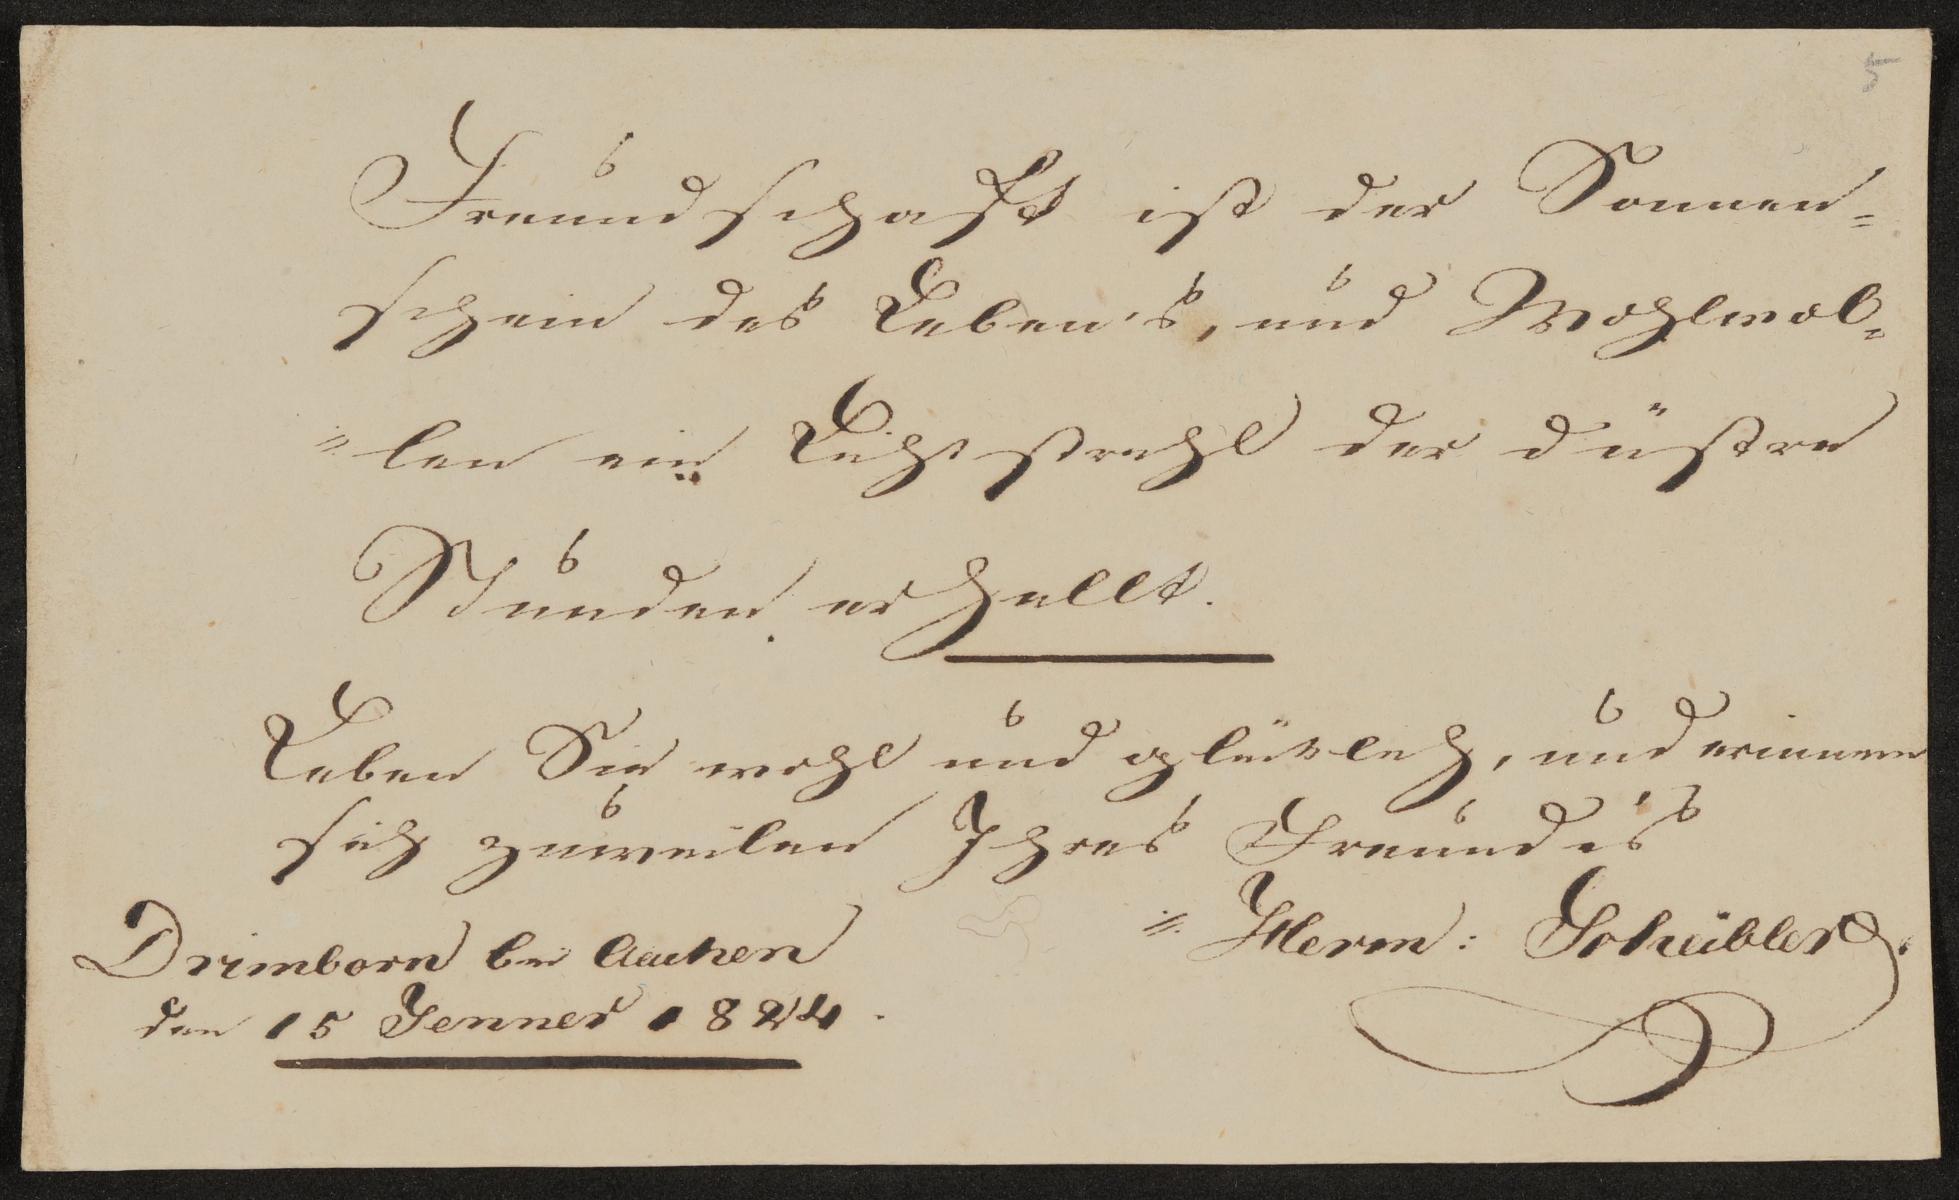 5
Freundschaft ist der Sonnen=
schein des Leben's, und Wohlwol=
=len ein Lichtstrahl der düstre
Stunden erhellt.
Leben Sie wohl und glücklich, und erinnern
sich zuweilen Ihres Freundes
=. Herm: Scheibler.
Drimborn bei Aachen
den 15 Jenner 1824.